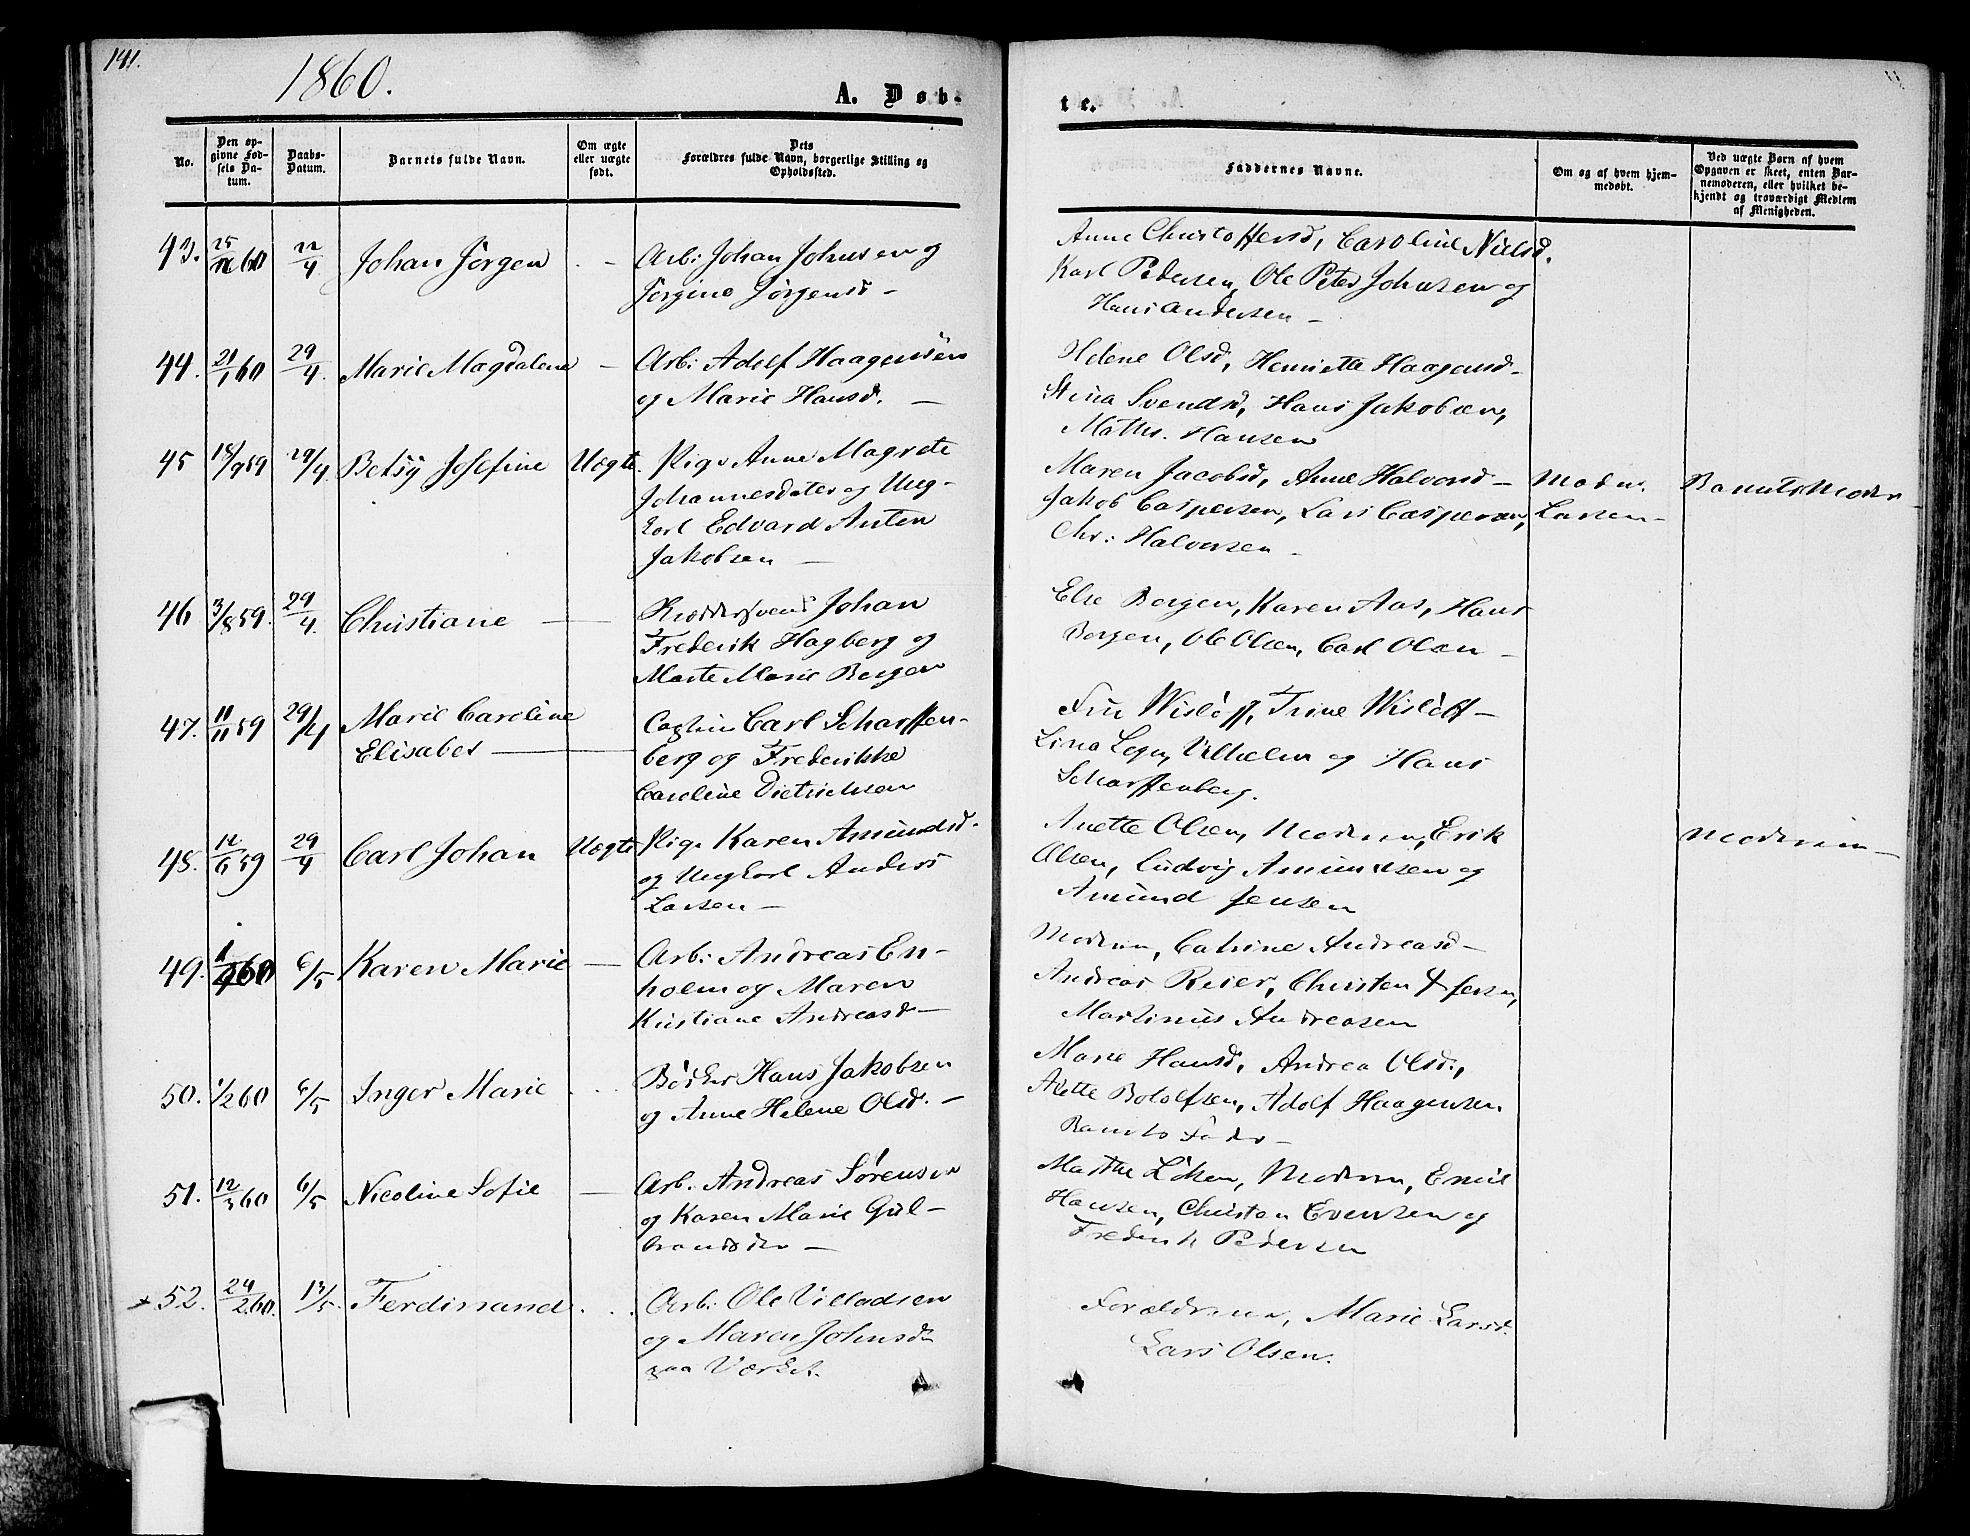 141.
1860.
A. Døb-
te.
No.
Den op-
givne Fød-
sels Da-
tum.
Daabs-
Datum.
Barnets fulde Navn.
Om ægte
eller uægte
født.
Dets
Forældres fulde Navn, borgerlige Stilling og
Opholdssted.
Faddernes Navne.
Om og af hvem hjem-
medøbt.
Ved uægte Børn af hvem
Opgaven er skeet, enten Bar-
nemoderen, eller hvilket be-
kjendt og troværdigt Medlem
af Menigheden.
43. 60 22/4 Johan Jørgen - Arb: Johan Johnsen og
Jørgine Jørgensd -
Anne Christoffersd, Caroline Nielsd.
Karl Pedersen, Ole Peter Johnsen og
Hans Andersen -
44. 21/1 60 29/4. Marie Magdalene - Arb: Adolf Haagensen
og Marie Hansd. -
Helene Olsd, Henriette Haagensd -
Stina Svendsd, Hans Jakobsen,
Maths. Hansen
45 18/9 59 29/4 Betsy Josefine Uægte. Pige Anne Magrete
Johannesdater og Ung-
karl Edvard Anton
Jakobsen -
Maren Jacobsd, Anne Halvorsd -
Jakob Caspersen, Lars Caspersen,
Chr: Halvorsen -
Larsen -
Barnets Moder
46 3/8 59. 29/4. Christiane - Johan
Frederik Hagberg og
Marte Marie Bergen
Else Bergen, Karen Aas, Hans
Bergen, Ole Olsen, Carl Olsen -
47. 11/11 59 29/4 Marie Caroline
Elisabet - Carl Scharffen-
berg og Frederikke
Caroline Dietrichsen
Fru Wisløff, Trine Wisløff -
Lina Vilhelm og Hans
Scharffenberg.
48. 12/6 59 29/4 Carl Johan Uægte Pige Karen Amundsd.
og Ungkarl Anders
Larsen -
Anette Olsen, Moderen, Erik
Olsen, Ludvig Amundsen og
Amund Jensen
Moderen -
49. 60 6/5 Karen Marie - Arb: Andreas En-
holm og Maren
Kristiane Andreasd -
Moderen, Catrine Andreasd -
Andreas Reier, Christen
Martinus Andreasen
50. 1/2 60 6/5 Inger Marie Bødker Hans Jakobsen
og Anne Helene Olsd. -
Marie Hansd, Andrea Olsd.,
Anette Botolfsen, Adolf Haagensen
Barnets Fader -
51. 12/3 60 6/5 Nicoline Sofie - Arb. Andreas Sørensen
og Karen Marie Gul-
brandsd -
Marthe Løken, Moderen, Emil
Hansen, Christen Evensen og
Frederik Pedersen
52. 24/2 60. 13/5. Ferdinand. Arb: Ole Villadsen
og Maren Johnsd
paa Værket.
Forældrene, Marie Larsd.
Lars Olsen.